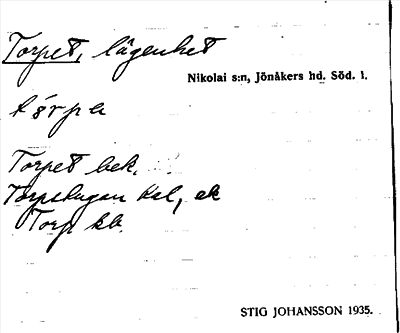 Torpet, lägenhet
Nikolai s:n, Jönåkers hd. Söd. l.
Torpet bek.
Torpstugan
Torp kb.
STIG JOHANSSON 1935.